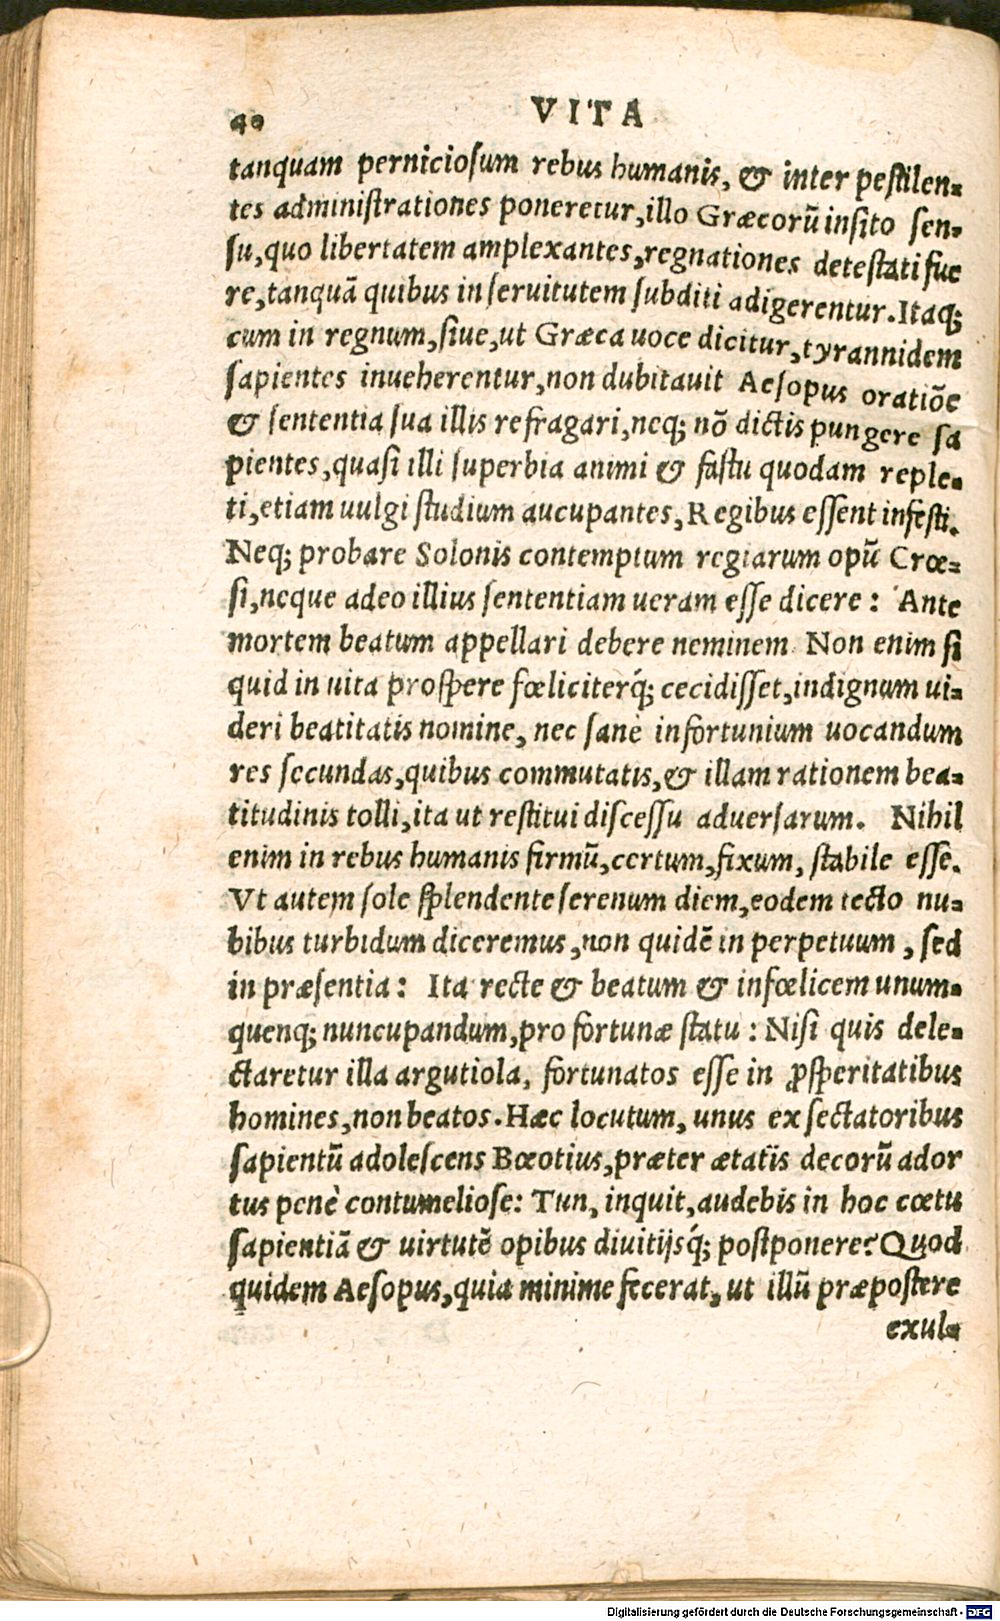 40 VITA
tanquam perniciosum rebus humanis, & inter pestilen-
tes administrationes poneretur, illo Græcorũ insito sen-
su, quo libertatem amplexantes, regnationes detestati fue
re, tanquã quibus in seruitutem subditi adigerentur. Itaq;
cum in regnum, siue, ut Græca uoce dicitur, tyrannidem
sapientes inueherentur, non dubitauit Aesopus oratiõe
& sententia sua illis refragari, neq; nõ dictis pungere sa
pientes, quasi illi superbia animi & fastu quodam reple-
ti, etiam uulgi studium aucupantes, Regibus essent infesti.
Neq; probare Solonis contemptum regiarum opũ Crœ-
si, neque adeo illius sententiam ueram esse dicere: Ante
mortem beatum appellari debere neminem. Non enim si
quid in uita prospere fœliciterq́; cecidisset, indignum ui-
deri beatitatis nomine, nec sanè infortunium uocandum
res secundas, quibus commutatis, & illam rationem bea-
titudinis tolli, ita ut restitui discessu aduersarum. Nihil
enim in rebus humanis firmũ, certum, fixum, stabile esse.
Vt autem sole splendente serenum diem, eodem tecto nu-
bibus turbidum diceremus, non quidẽ in perpetuum, sed
in præsentia: Ita recte & beatum & infœlicem unum-
quenq; nuncupandum, pro fortunæ statu: Nisi quis dele-
ctaretur illa argutiola, fortunatos esse in ꝓsperitatibus
homines, non beatos. Hæc locutum, unus ex sectatoribus
sapientũ adolescens Bœotius, præter ætatis decorũ ador
tus penè contumeliose: Tun, inquit, audebis in hoc cœtu
sapientiã & uirtutẽ opibus diuitijsq́; postponere? Quod
quidem Aesopus, quia minime fecerat, ut illũ præpostere
exul-
Digitalisierung gefördert durch die Deutsche Forschungsgemeinschaft - DFG